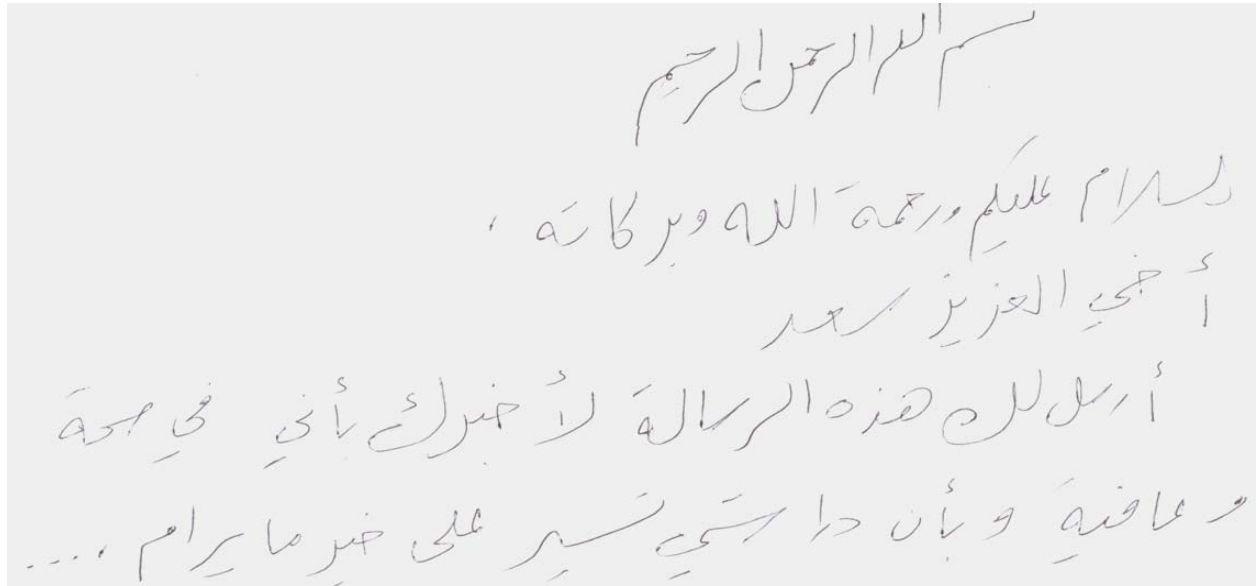 بسم الله الرحمن الرحيم
السلام عليكم ورحمة الله وبركاته ،
أخي العزيز سعد
أرسل لك هذه الرسالة لأخبرك بأني في صحة
وعافية وبأن دراستي تسير على خير ما يرام ....